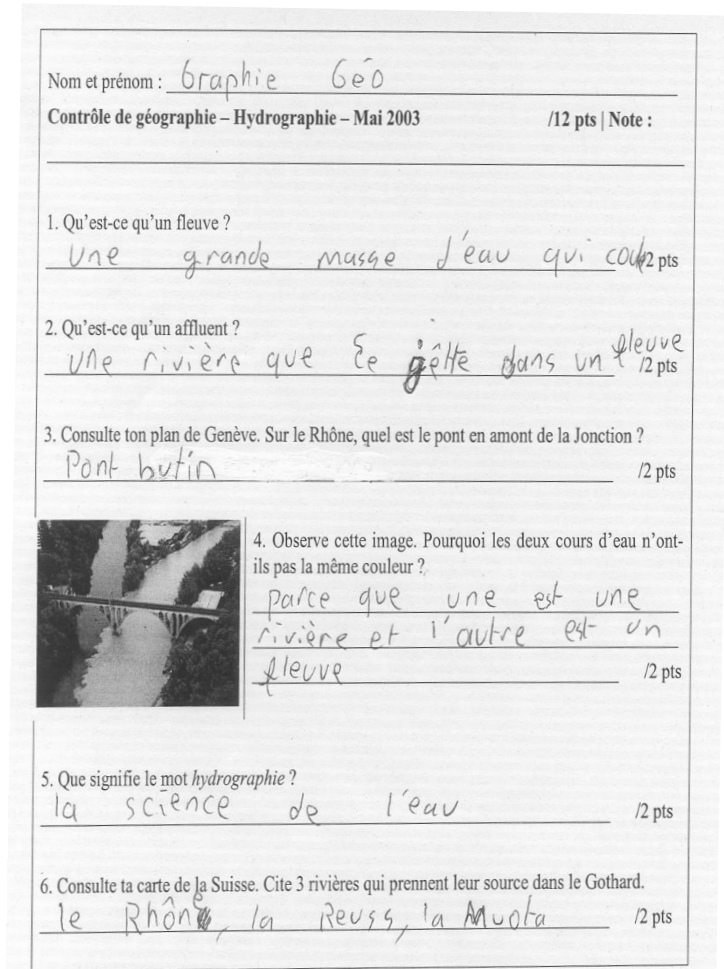 Nom et prénom : Graphie Géo
Contrôle de géographie – Hydrographie – Mai 2003 /12 pts | Note :
1. Qu'est-ce qu'un fleuve ?
une grande masse d'eau qui coule /2 pts
2. Qu'est-ce qu'un affluent ?
une rivière que se gêtte dans un fleuve
/2 pts
3. Consulte ton plan de Genève. Sur le Rhône, quel est le pont en amont de la Jonction ?
Pont butin /2 pts
4. Observe cette image. Pourquoi les deux cours d'eau n'ont-
ils pas la même couleur ?
parce que une est une
rivière et l'autre est un
fleuve /2 pts
5. Que signifie le mot hydrographie ?
la science de l'eau /2 pts
6. Consulte ta carte de la Suisse. Cite 3 rivières qui prennent leur source dans le Gothard.
le Rhône, la Reuss, la Muota /2 pts